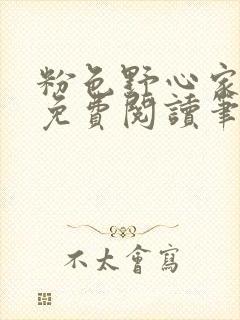 粉色野心家
免費閱讀筆
不太會寫